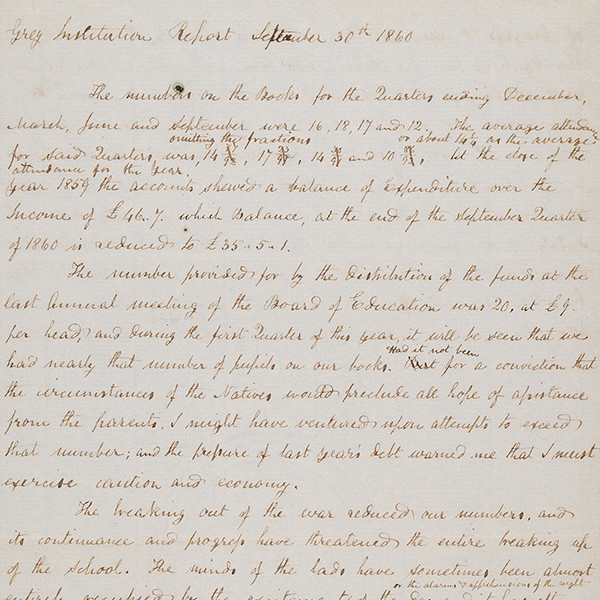 Grey Institution Report September 30th 1860
The numbers on the Books for the Quarters ending December,
March, June and September were 16, 18, 17 and 12. The average attendance
omitting the fractions or about 14¼ as the average
for said Quarters, was, 14, 17, 14 and 10, At the close of the
attendance for the year.
year 1859 the accounts shewed a balance of Expenditure over the
Income of £46.7. which Balance, at the end of the September Quarter
of 1860 is reduced to £35-5-1.
The number provided for by the distribution of the funds at the
last Annual meeting of the Board of Education was 20, at £9.
per head, and during the first Quarter of this year, it will be seen that we
had nearly that number of pupils on our books. Had it not been
for a conviction that
the circumstances of the Natives would preclude all hope of assistance
from the parents, I might have ventured upon attempts to exceed
that number; and the pressure of last year's debt warned me that I must
exercise caution and economy.
The breaking out of the war reduced our numbers, and
its continuance and progress have threatened the entire breaking up
of the school. The minds of the lads have sometimes been almost
or the alarms & apprehensions of the night
entirely occupied by the